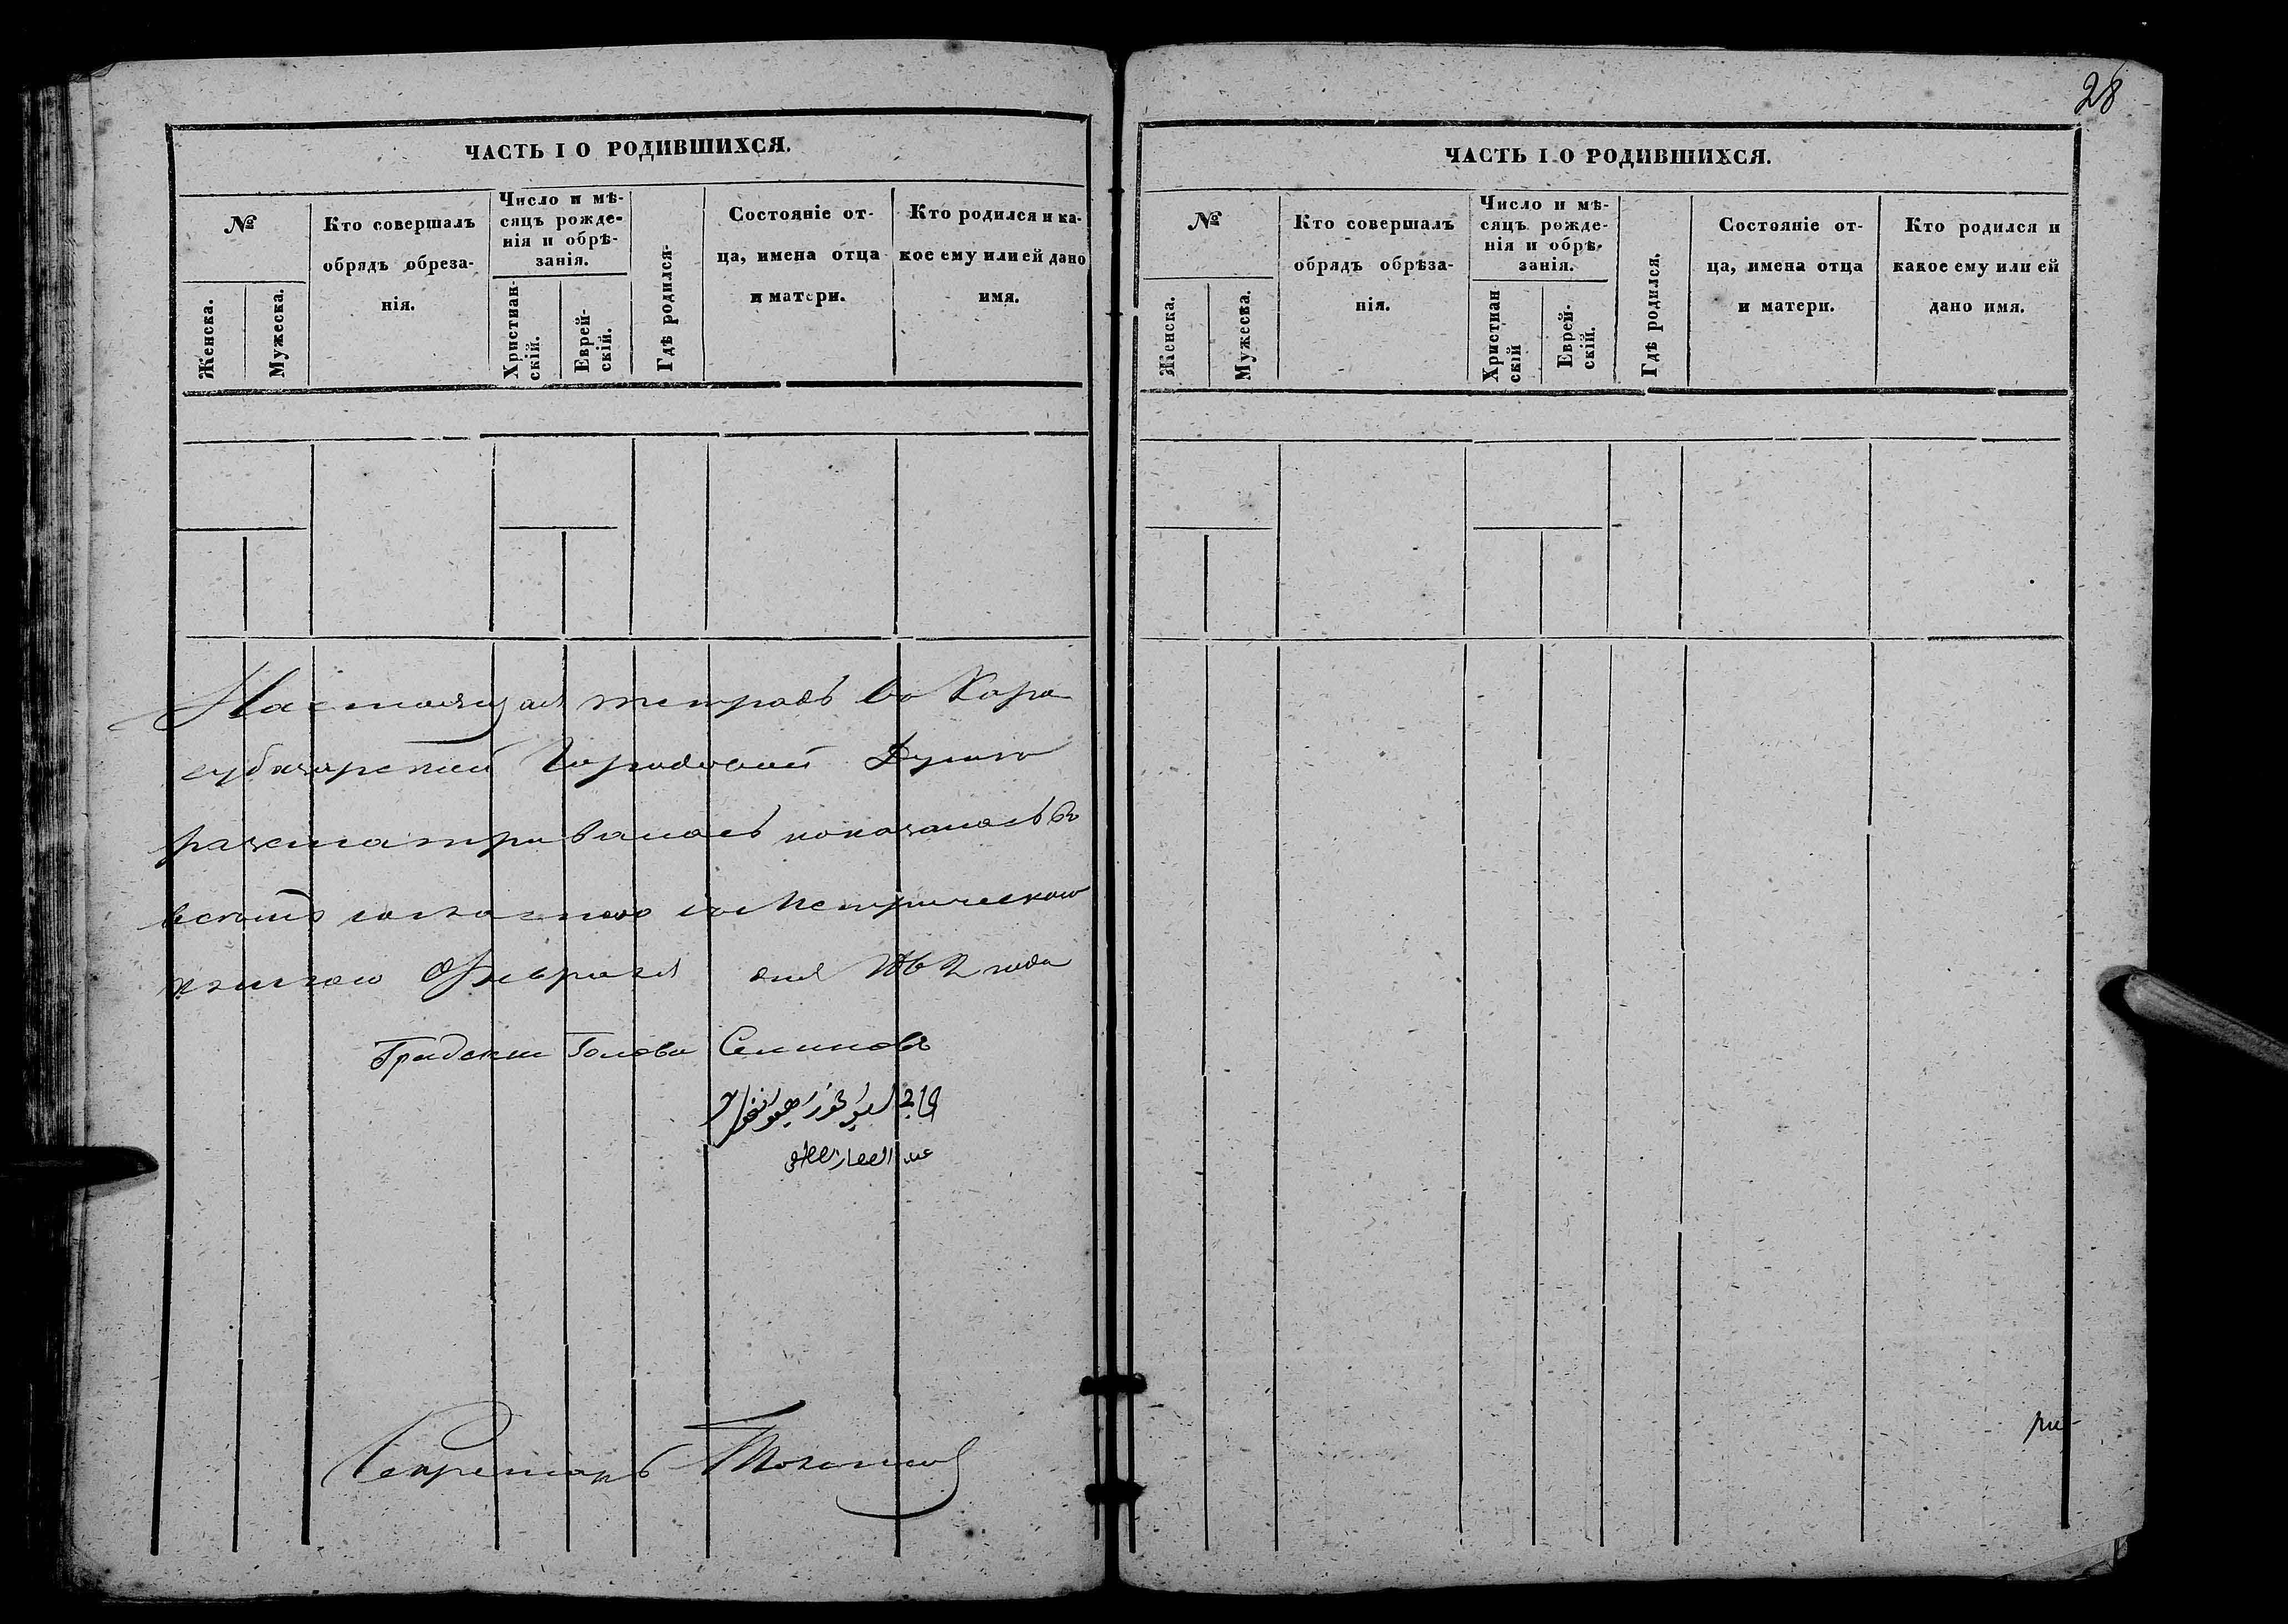 ЧАСТЬ I О РОДИВШИХСЯ.
№
Женска.
Мужеска.
Кто совершалъ
обрядъ обреза-
нія.
Число и мѣ-
сяцъ рожде-
нія и обрѣ-
занія.
Христиан-
скій.
Еврей-
скій.
Гдѣ родился-
Состояніе от-
ца, имена отца
и матери.
Кто родился и ка-
кое ему или ей дано
имя.
Настоящая тетрадь во Кара
субазарской Городовой Думѣ
разсматривалась показалась въ
всемъ согласною съ Метрическою
книгою Февраля дня 1862 года
Градскій Голова
Секретарь
28
ЧАСТЬ I О РОДИВШИХСЯ.
№
Женска.
Мужеска.
Кто совершалъ
обрядъ обрѣза-
нія.
Число и мѣ-
сяцъ рожде-
нія и обрѣ-
занія.
Христиан
скій
Еврей-
скій.
Гдѣ родился.
Состояніе от-
ца, имена отца
и матери.
Кто родился и
какое ему или ей
дано имя.
ри-